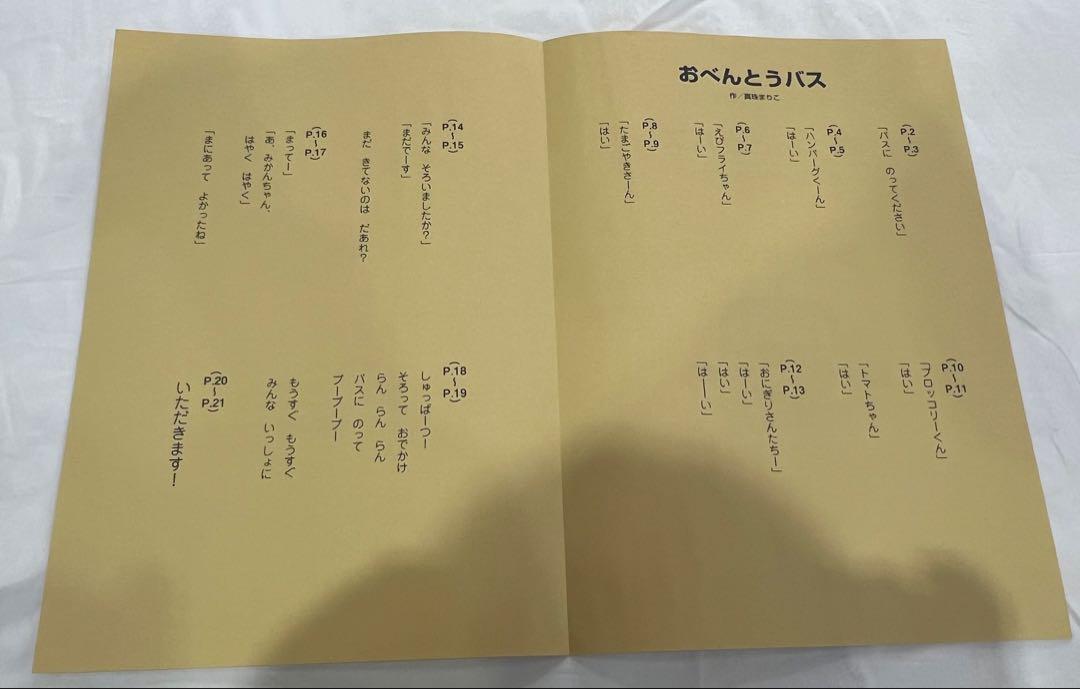 おべんとうバス
作／真珠まりこ
（P.2〜P.3）
「バスに のってください」
（P.4〜P.5）
「ハンバーグくーん」
「はーい」
（P.6〜P.7）
「えびフライちゃん」
「はーい」
（P.8〜P.9）
「たまごやきさーん」
「はい」
（P.10〜P.11）
「ブロッコリーくん」
「はい」
「トマトちゃん」
「はい」
（P.12〜P.13）
「おにぎりさんたちー」
「はーい」
「はい」
「はーーい」
（P.14〜P.15）
「みんな そろいましたか？」
「まだでーす」
まだ きてないのは だあれ？
（P.16〜P.17）
「まってー」
「あ、みかんちゃん、
はやく はやく」
「まにあって よかったね」
（P.18〜P.19）
しゅっぱーつー
そろって おでかけ
らん らん らん
バスに のって
プープープー
もうすぐ もうすぐ
みんな いっしょに
（P.20〜P.21）
いただきます！